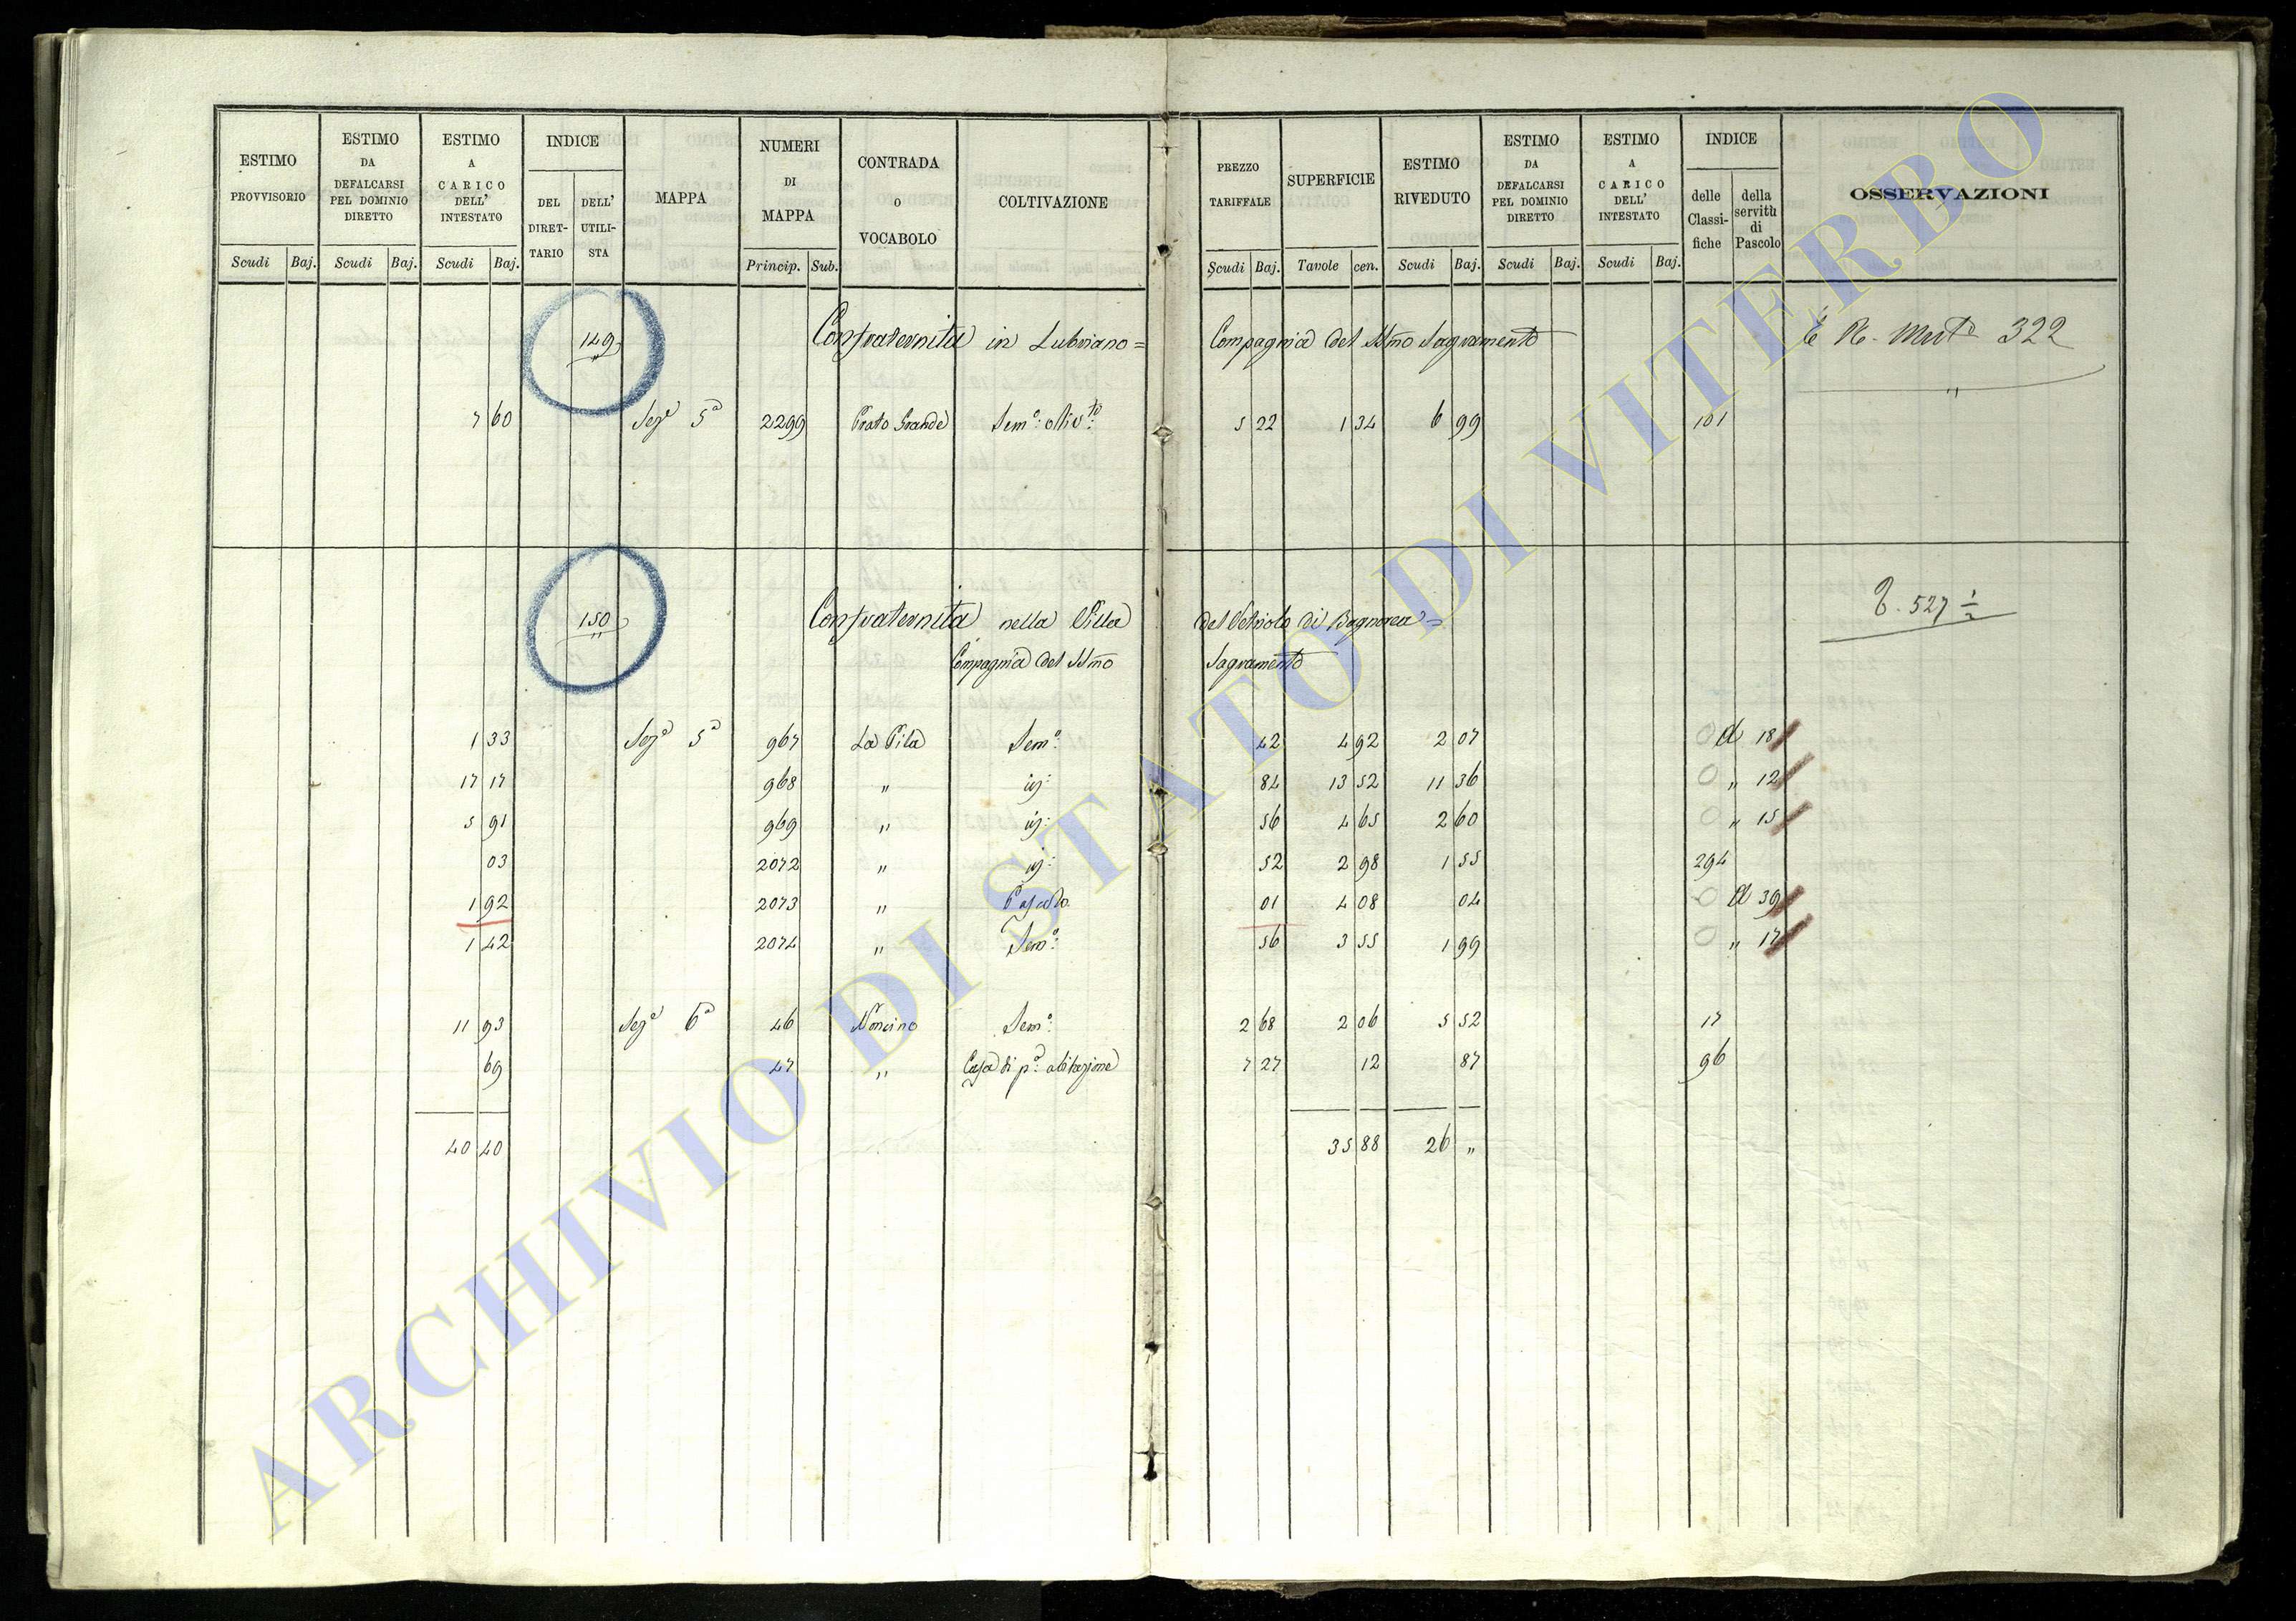 ESTIMO PROVVISORIO
ESTIMO DA DEFALCARSI PEL DOMINIO DIRETTO
ESTIMO A CARICO DELL' INTESTATO
INDICE
DEL DIRET-TARIO
DELL' UTILI-STA
MAPPA
NUMERI DI MAPPA
CONTRADA O VOCABOLO
COLTIVAZIONE
PREZZO TARIFFALE
SUPERFICIE
ESTIMO RIVEDUTO
ESTIMO DA DEFALCARSI PEL DOMINIO DIRETTO
ESTIMO A CARICO DELL' INTESTATO
INDICE
delle Classi-fiche
della servitù di Pascolo
OSSERVAZIONI
Scudi Baj. Scudi Baj. Scudi Baj. Princip. Sub. Scudi Baj. Tavole cen. Scudi Baj. Scudi Baj. Scudi Baj.
149 Confraternita in Lubriano = Compagnia del SSmo Sagramento 322
7 60 Seze 5a 2299 Prato Grande Semo: olivto: 5 22 1 34 6 99 101
150 Confraternita nella Villa del Vetriolo di Bagnorea = 527 1/2
Compagnia del SSmo Sagramento
1 33 Seze 5a 967 La Pila Semo: 42 4 92 2 07 0 A 18
17 17 968 " id: 84 13 52 11 36 0 " 12
5 91 969 " id: 56 4 65 2 60 0 " 15
03 2072 " id: 52 2 98 1 55 294
1 92 2073 " Pascolo 01 4 08 04 0 A 39
1 42 2074 " Semo: 56 3 55 1 99 0 " 17
11 93 Seze 6a 46 Noncino Semo: 2 68 2 06 5 52 17
69 47 " Casa di pa: abitazione 7 27 12 87 96
40 40 35 88 26 "
ARCHIVIO DI STATO DI VITERBO